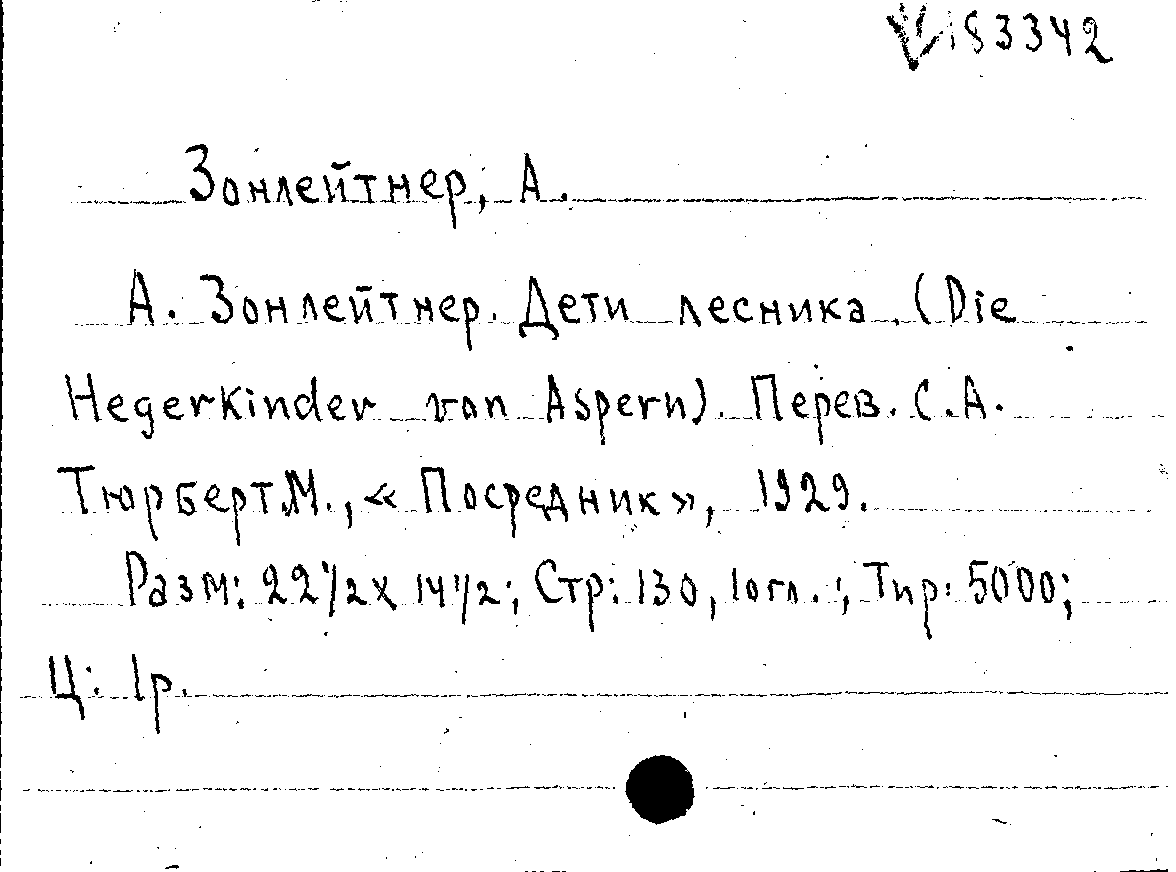 183342
Зонлейтнер, А.
А. Зонлейтнер. Дети лесника. (Die
Hegerkinder von Aspern). Перев. С.А.
Тюрберт. М., «Посредник», 1929.
Разм: 22 1/2 х 14 1/2; Стр: 130, 1 огл.; Тир: 5000;
Ц: 1р.